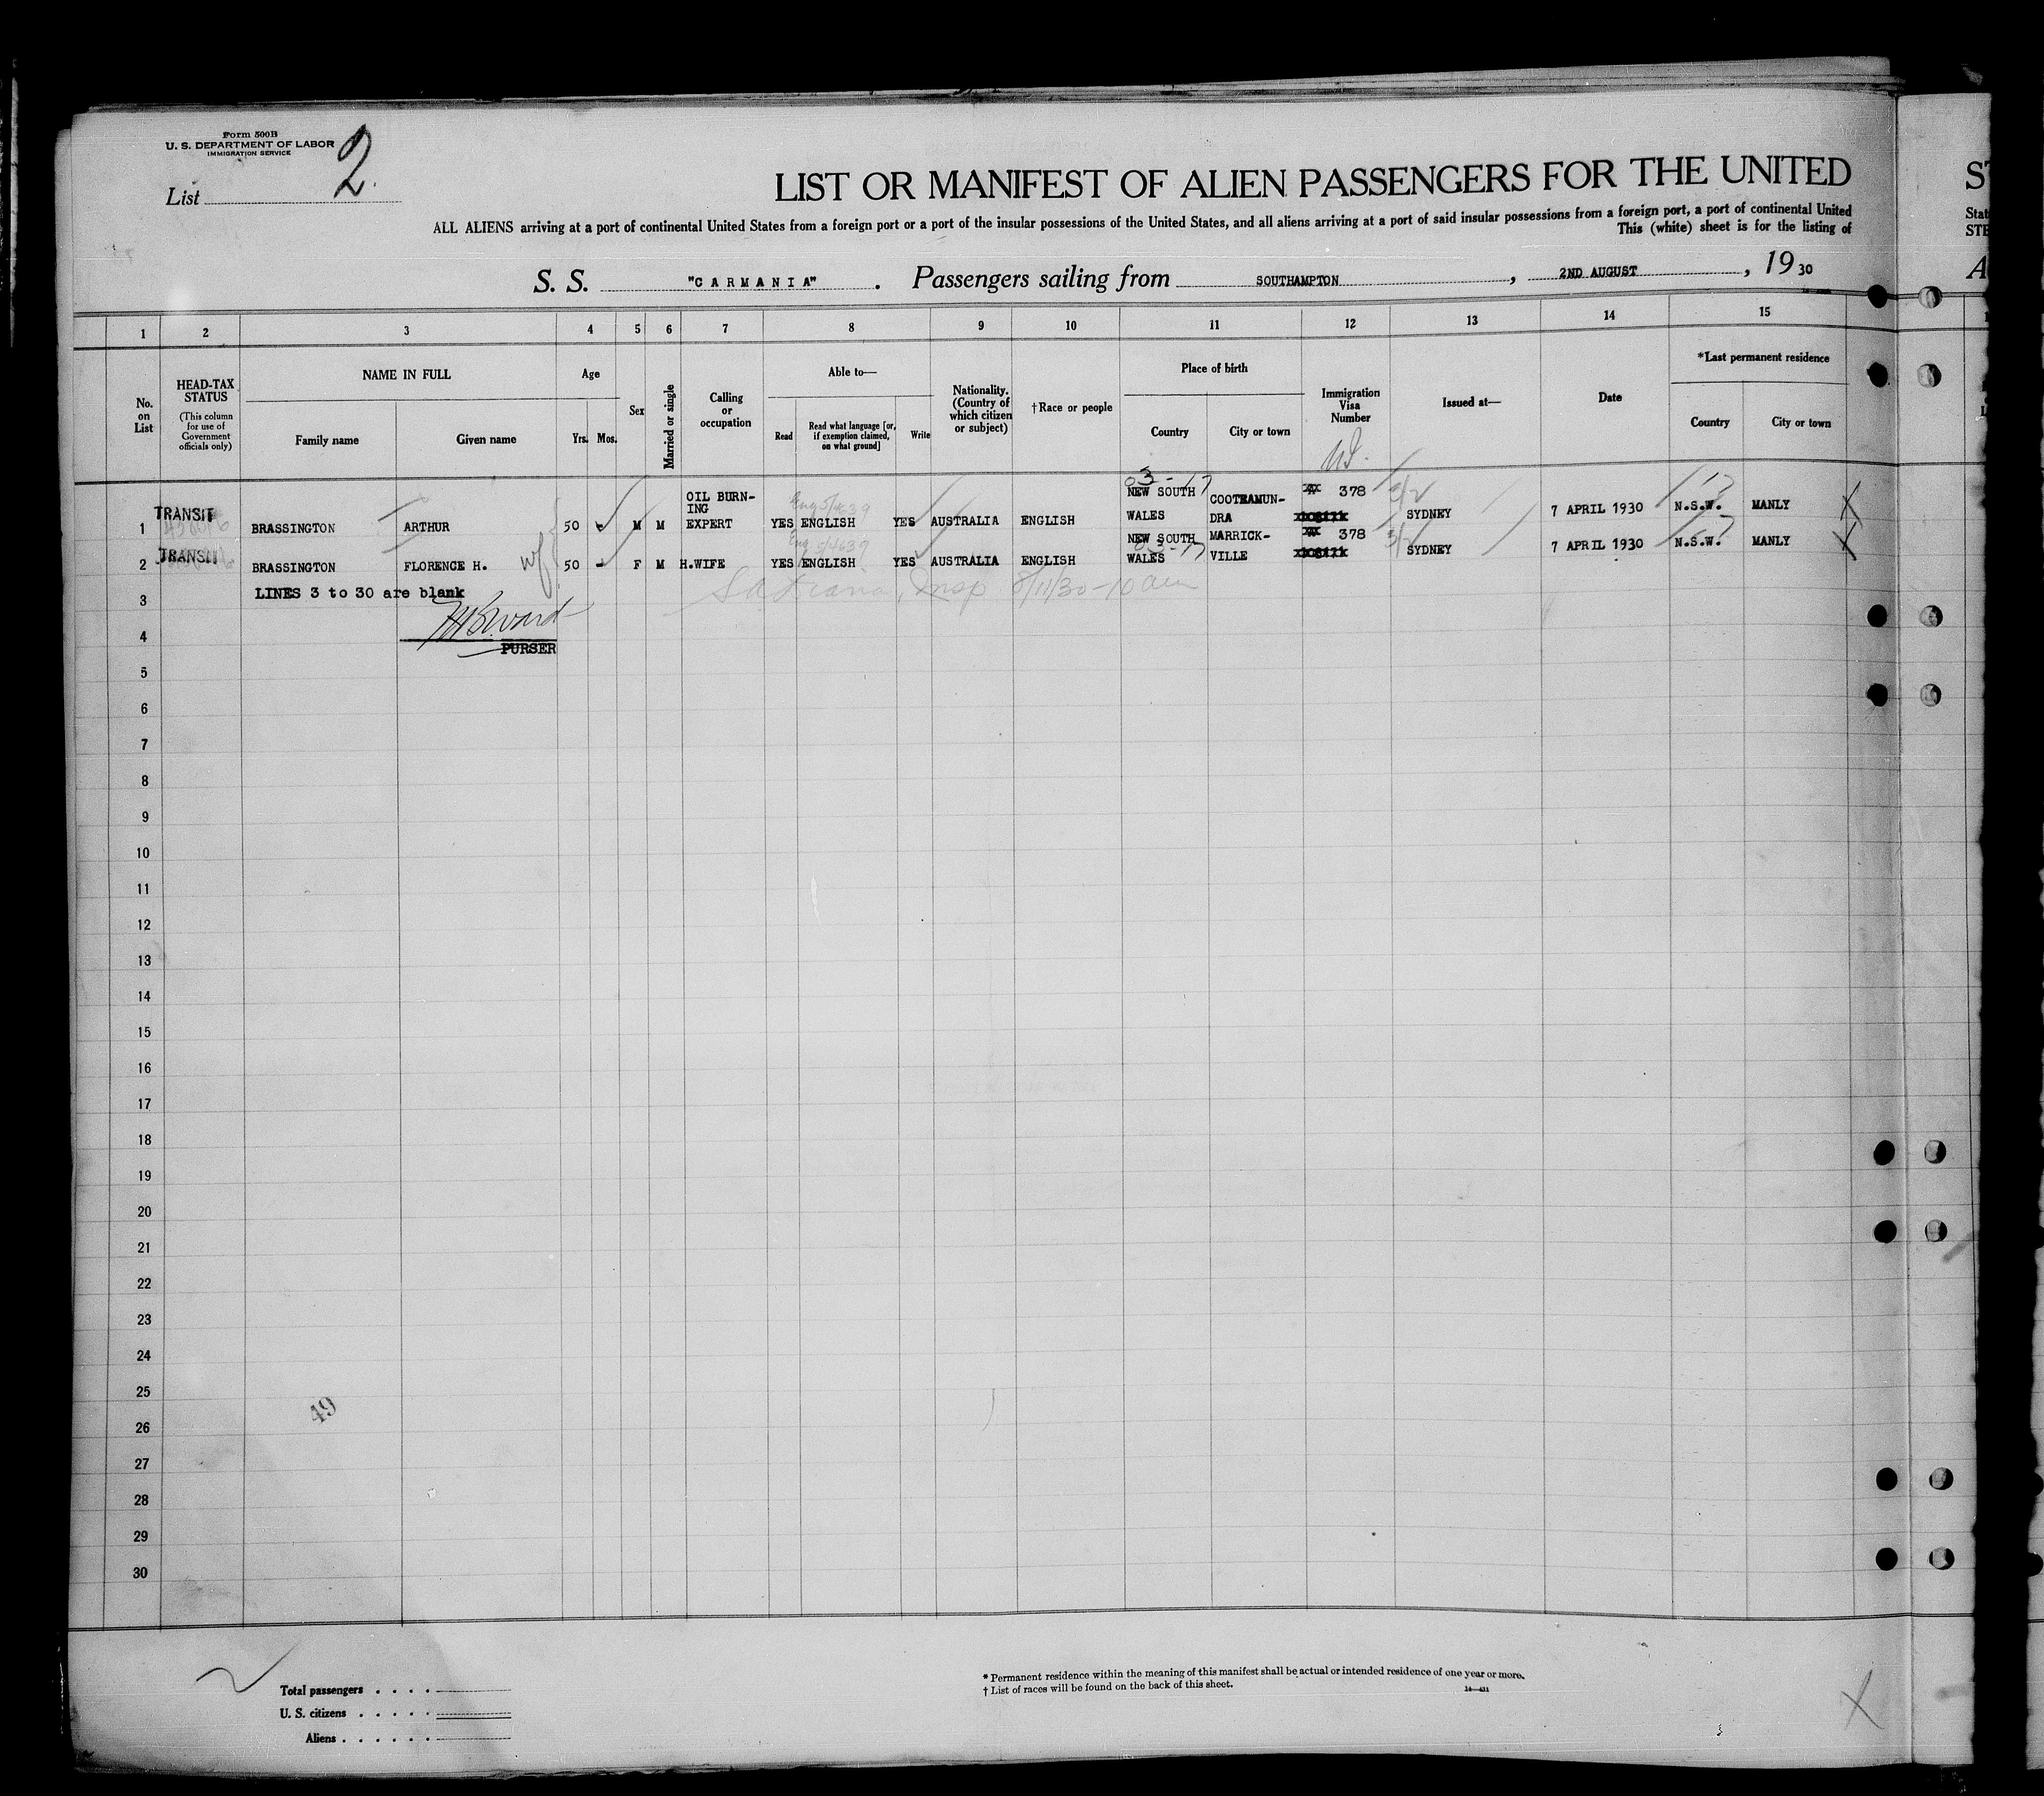 Form 500B
U. S. DEPARTMENT OF LABOR
IMMIGRATION SERVICE
List 2
LIST OR MANIFEST OF ALIEN PASSENGERS FOR THE UNITED
ALL ALIENS arriving at a port of continental United States from a foreign port or a port of the insular possessions of the United States, and all aliens arriving at a port of said insular possessions from a foreign port, a port of continental United
This (white) sheet is for the listing of
S. S. "CARMANIA". Passengers sailing from SOUTHAMPTON, 2ND AUGUST, 1930
1 2 3 4 5 6 7 8 9 10 11 12 13 14 15
No. on List
HEAD-TAX STATUS
(This column for use of Government officials only)
NAME IN FULL
Family name Given name
Age
Yrs. Mos.
Sex
Married or single
Calling or occupation
Able to—
Read
Read what language [or, if exemption claimed, on what ground]
Write
Nationality. (Country of which citizen or subject)
†Race or people
Place of birth
Country City or town
Immigration Visa Number
Issued at—
Date
*Last permanent residence
Country City or town
1 TRANSIT BRASSINGTON ARTHUR 50 - M M OIL BURN-ING EXPERT YES ENGLISH YES AUSTRALIA ENGLISH NEW SOUTH WALES COOTRAMUN-DRA 378 SYDNEY 7 APRIL 1930 N.S.W. MANLY
2 TRANSIT BRASSINGTON FLORENCE H. wf 50 - F M H.WIFE YES ENGLISH YES AUSTRALIA ENGLISH NEW SOUTH WALES MARRICK-VILLE 378 SYDNEY 7 APRIL 1930 N.S.W. MANLY
LINES 3 to 30 are blank
3
4
PURSER
5
6
7
8
9
10
11
12
13
14
15
16
17
18
19
20
21
22
23
24
25
49
26
27
28
29
30
Total passengers . . . .
U. S. citizens . . . . .
Aliens . . . . . .
* Permanent residence within the meaning of this manifest shall be actual or intended residence of one year or more.
† List of races will be found on the back of this sheet.